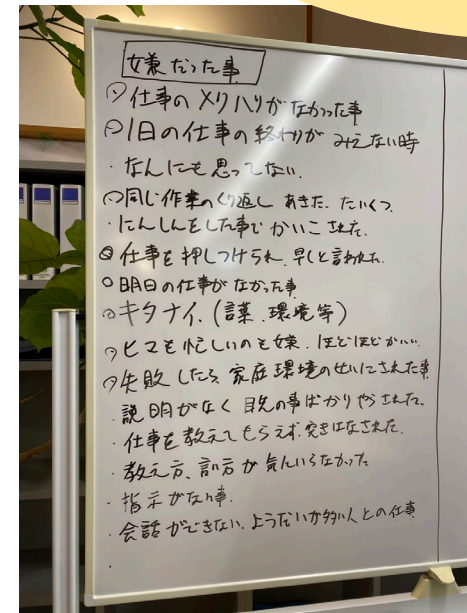 嫌だった事
仕事のメリハリがなかった事
1日の仕事の終わりがみえない時
・なんにも思ってない.
同じ作業のくり返し あきた、たいくつ.
・にんしんをした事でかいこされた.
仕事を押しつけられ、早くと言われた.
○明日の仕事がなかった事
キタナイ.(言葉.環境等)
ヒマも忙しいのも嫌.ほどほどがいい.
失敗したら家庭環境のせいにされた事
説明がなく目先の事ばかりやらされた.
・仕事を教えてもらえず.突きはなされた.
・教え方、言い方が気にいらなかった
・指示がない事.
・会話ができない、ようだいが多い人との仕事
・